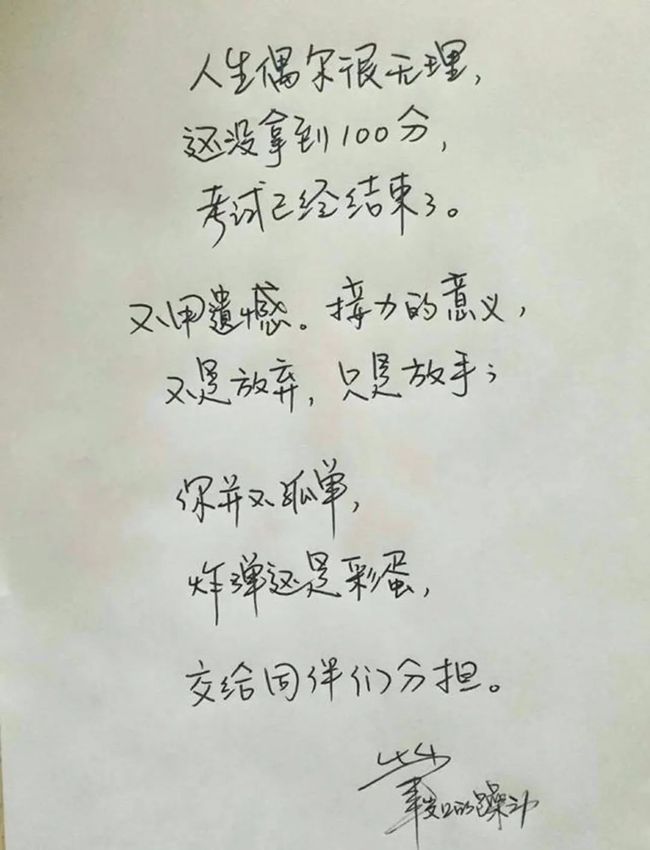 人生偶尔很无理,
还没拿到100分,
考试已经结束了。
不用遗憾。接力的意义,
不是放弃,只是放手;
你并不孤单,
炸弹还是彩蛋,
交给同伴们分担。
的躁动